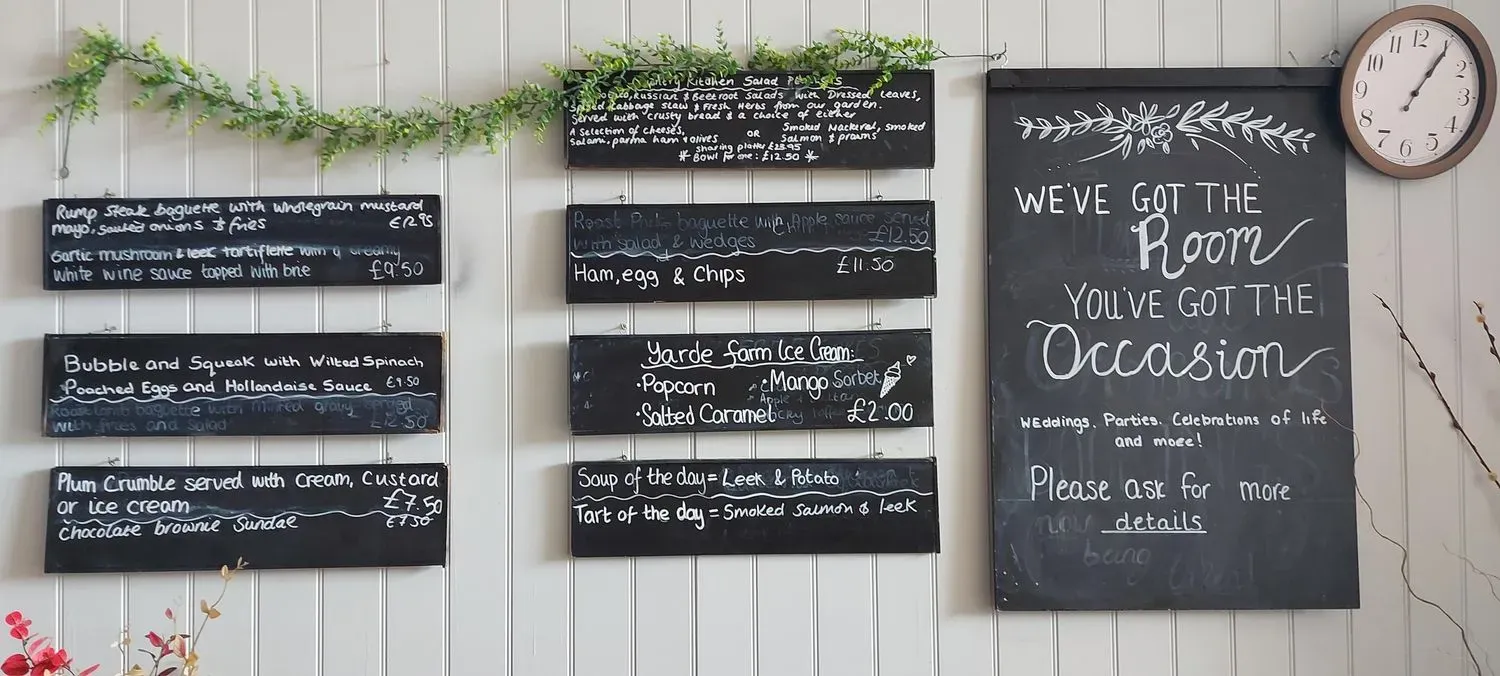 Rump Steak baguette with wholegrain mustard
mayo, sauted onions & fries £12.95
Garlic mushroom & leek tartiflette with a creamy
white wine sauce topped with brie £9.50
Bubble and Squeak with Wilted Spinach
Poached Eggs and Hollandaise Sauce £9.50
Roast lamb baguette with minted gravy served
with fries and salad £12.50
Plum Crumble served with Cream, Custard
or ice cream £7.50
Chocolate brownie Sundae £7.50
Kitchen Salad
Russian & Beetroot Salads with Dressed leaves,
Spiced Cabbage Slaw & Fresh Herbs from our garden.
Served with crusty bread & a choice of either
A Selection of cheeses, OR Smoked Mackerel, smoked
Salami, parma ham & olives Salmon & prawns
sharing platter £23.95
* Bowl for one: £12.50 *
Roast Pork baguette with Apple sauce served
with salad & wedges £12.50
Ham, egg & Chips £11.50
Yarde farm Ice Cream:
•Popcorn •Mango Sorbet
•Salted Caramel £2.00
Soup of the day = Leek & Potato
Tart of the day = Smoked salmon & leek
WE'VE GOT THE
Room
YOU'VE GOT THE
Occasion
Weddings. Parties. Celebrations of life
and more!
Please ask for more
details
being
11 12 1
10 2
9 3
8 4
7 6 5